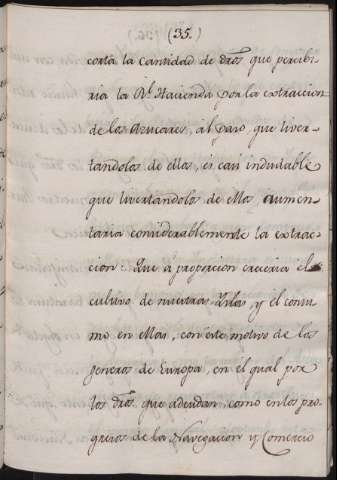 (35.)
corta la cantidad de dros, que percibi-
ria la Rl. Hacienda por la extraccion
de los Azucares, al paso, que liver-
tandolos de ellos, es casi indudable
que livertandolos de ellos aumen-
taria considerablemente la extrac-
cion: Que á proporcion creceria el
cultivo de nuestras Yslas, y el consu-
mo en ellas, con este motivo de los
generos de Europa, en el qual por
los dros. que adeudan, como en los pro-
gresos de la Navegacion y Comercio